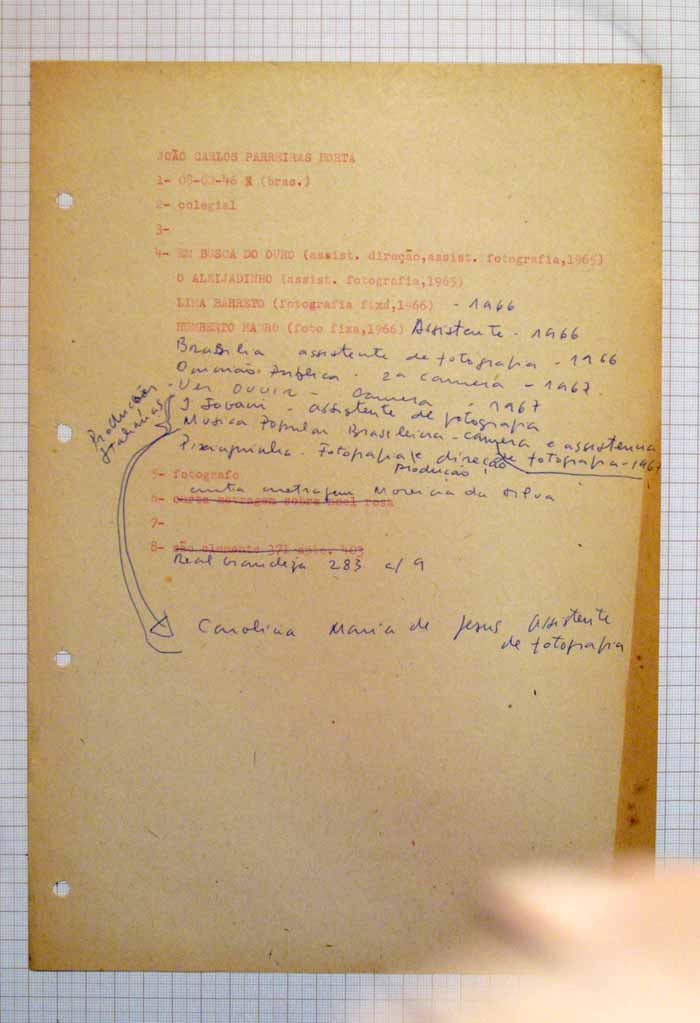 JOÃO CARLOS PARREIRAS HORTA
1- 08-02-46 (bras.)
2- colegial
3-
4- EM BUSCA DO OURO (assist. direção,assist. fotografia,1965)
O ALEIJADINHO (assist. fotografia,1965)
LIMA BARRETO (fotografia fixa,1966) - 1966
HUMBERTO MAURO (foto fixa,1966) Assistente - 1966
Brasilia assistente de fotografia - 1966
Opinião Publica - 2a camera - 1967.
Ver Ouvir - camera - 1967
I Jovani - assistente de fotografia
Musica Popular Brasileira - camera e assistencia
de fotografia - 1967
Pixinguinha. Fotografia e direção
produção
Produção
Italianas
5- fotografo
curta metragem Moreira da Silva
6- curta metragem sobre noel rosa
7-
8- são clemente 371 apto. 403
Real Grandeza 283 c/9
Carolina Maria de Jesus assistente
de fotografia